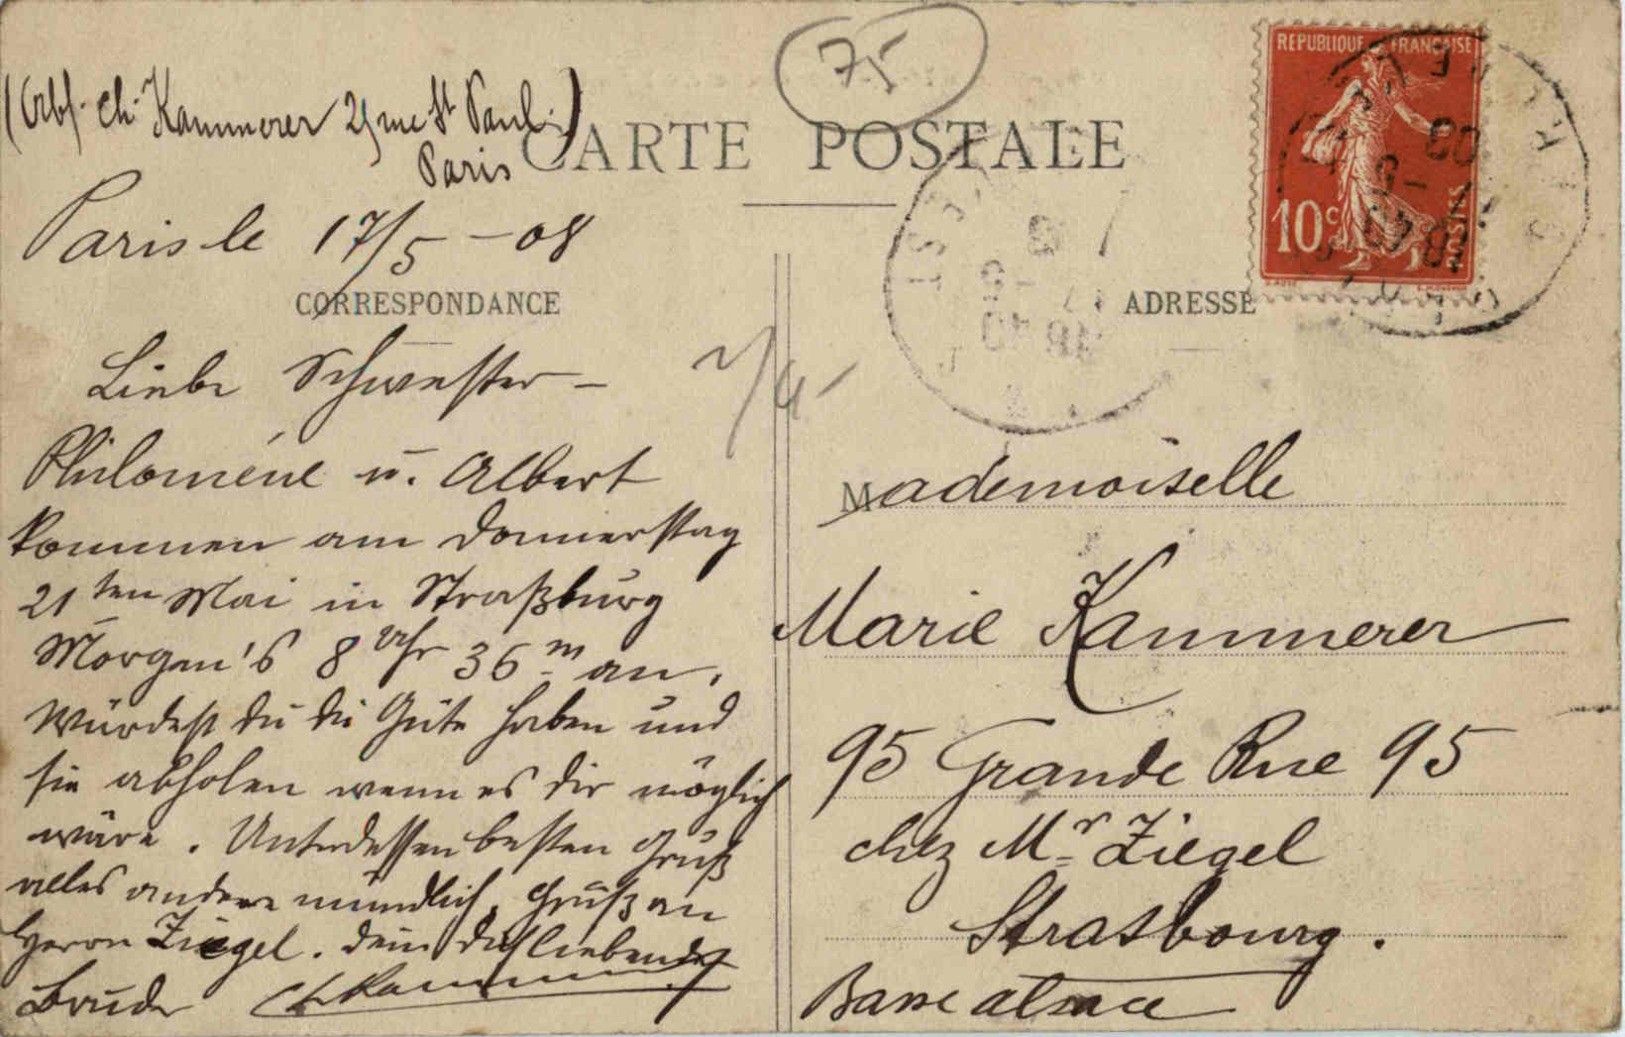 75
(Abs. Ch. Kammerer 25 rue St Paul.)
Paris
CARTE POSTALE
REPUBLIQUE FRANÇAISE
10c POSTES
Paris le 17/5 - 08
CORRESPONDANCE
ADRESSE
Liebe Schwester -
Philoméne u. Albert
kommen am Donnerstag
21ten Mai in Straßburg
Morgen's 8 Uhr 36 m an.
Würdest du die Güte haben und
sie abholen wenn es dir möglich
wäre. Unterdessen besten Gruß
alles andere mündlich, Gruß an
Herrn Ziegel. Dein dich liebender
Bruder Ch Kammerer
Mademoiselle
Marie Kammerer
95 Grande Rue 95
chez Mr Ziegel
Strasbourg.
Basse alsace